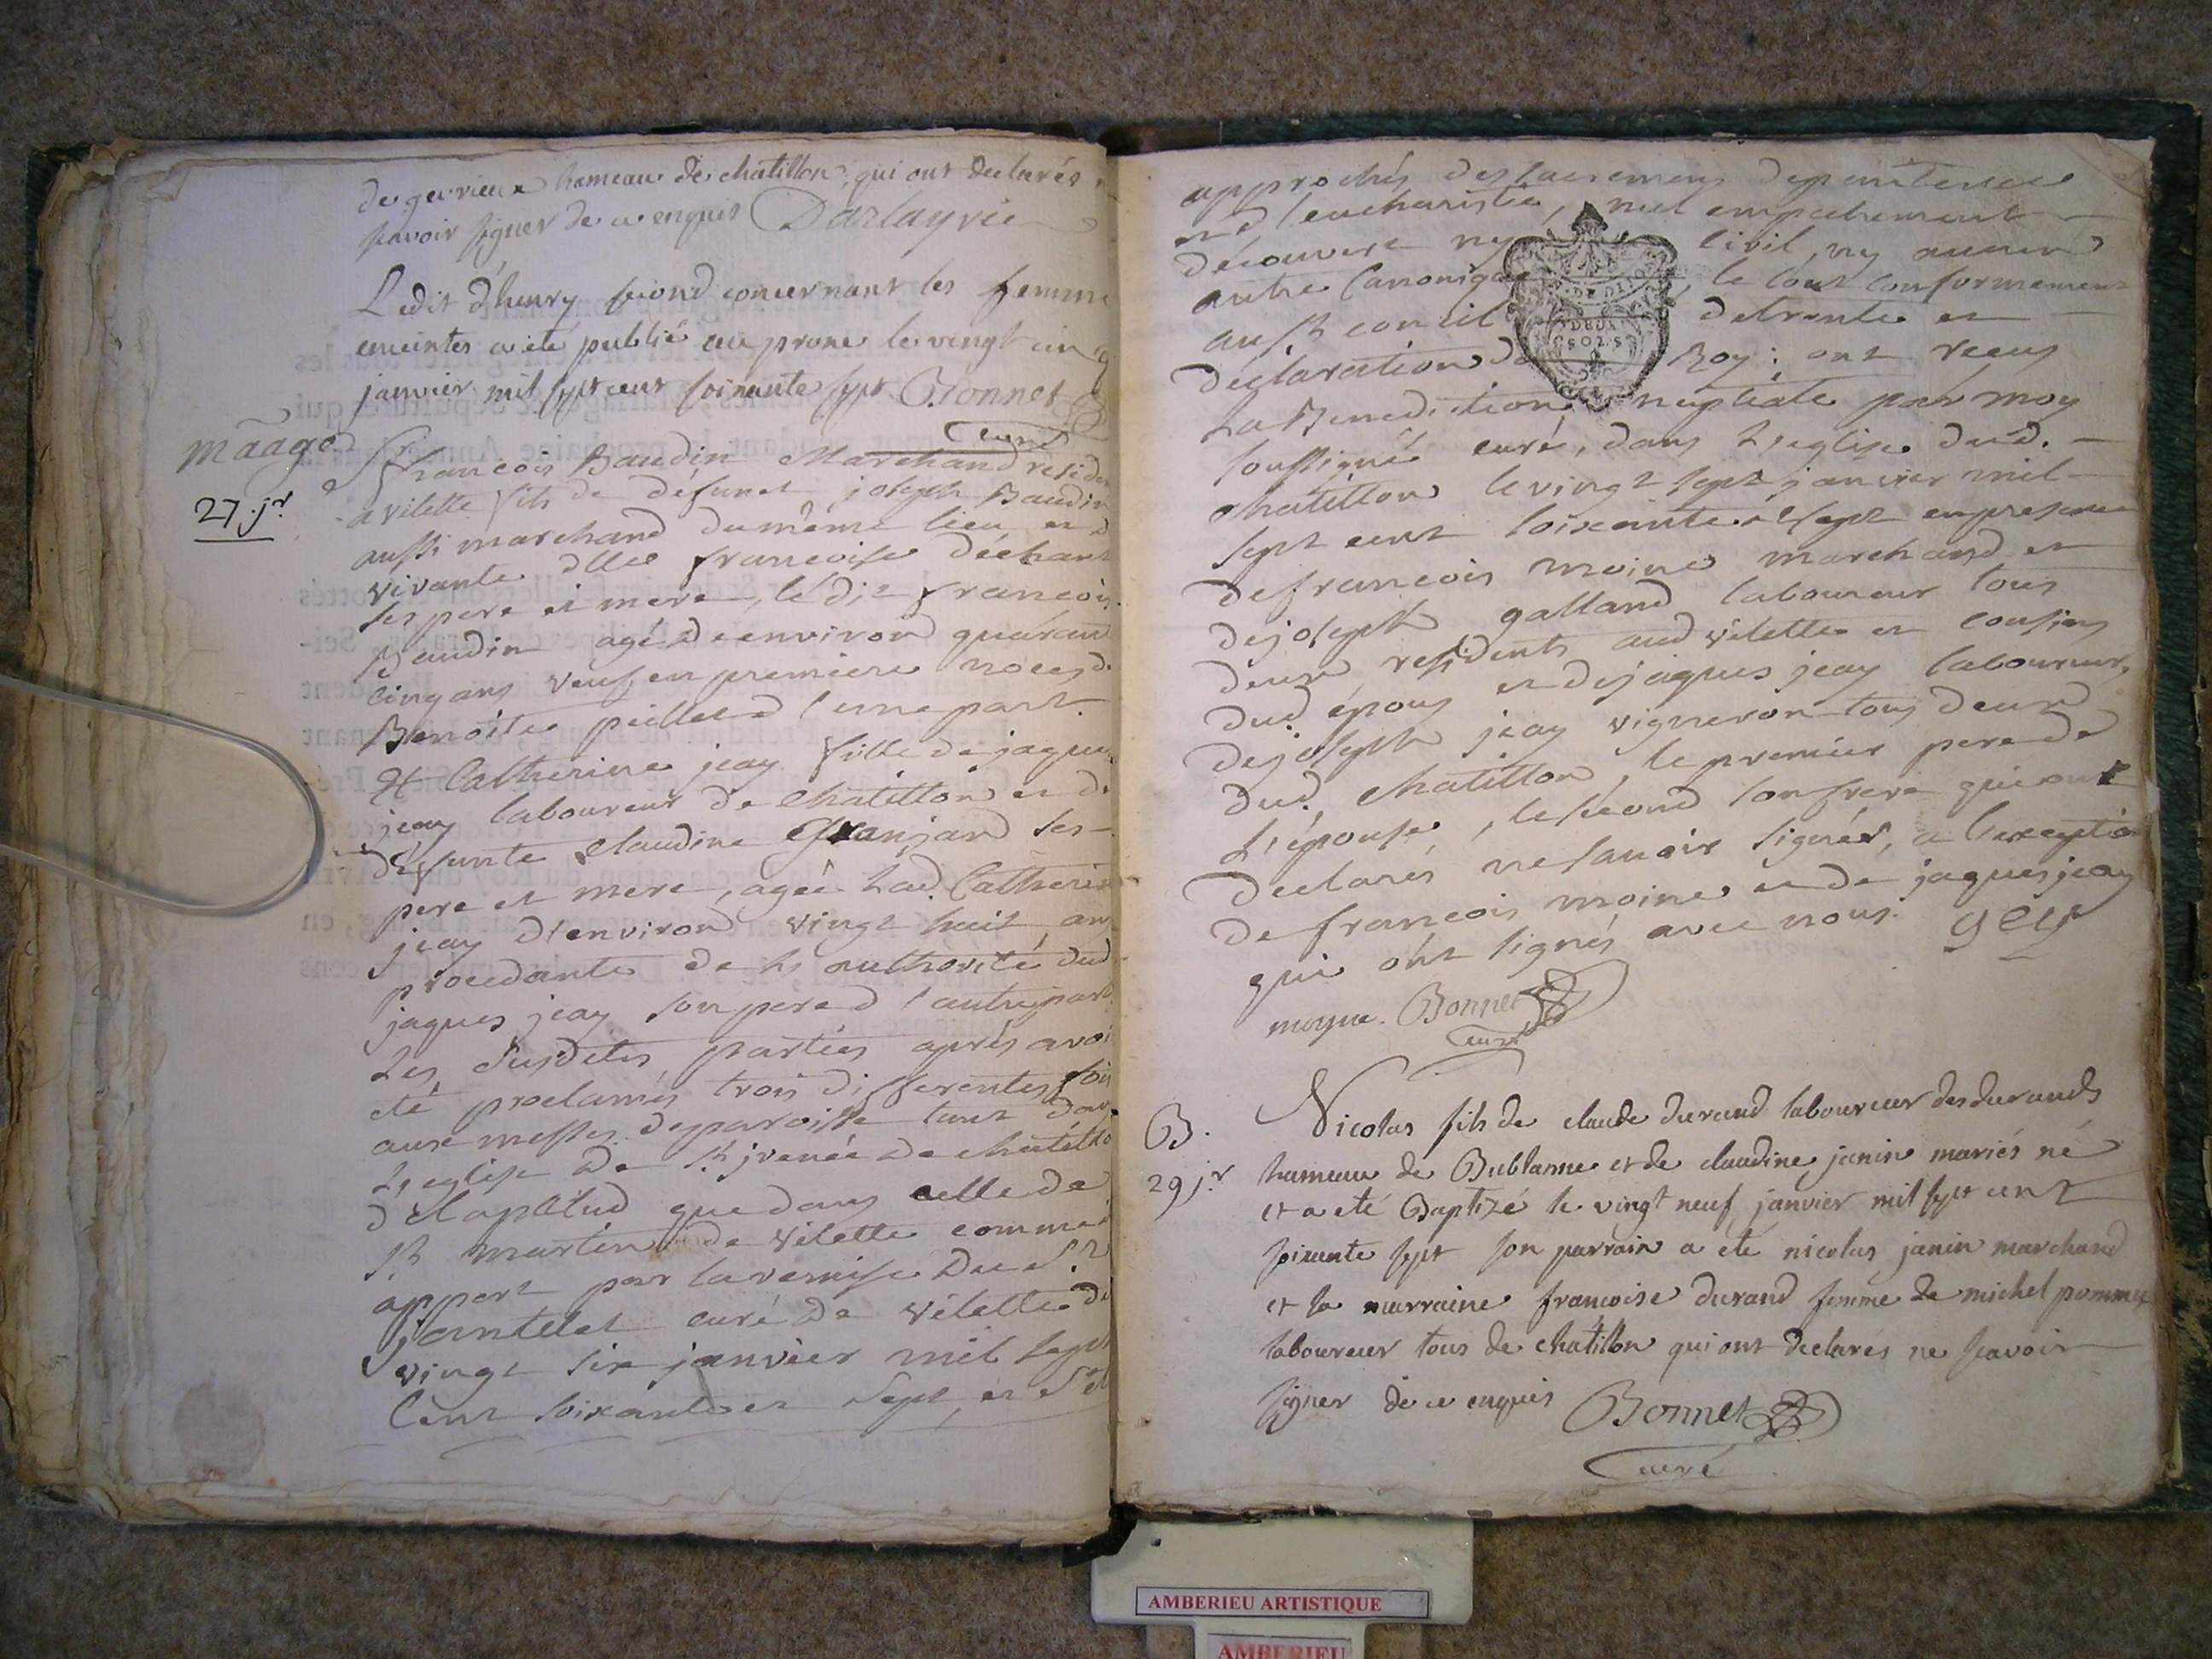 de gevrieux hameau de chatillon, qui ont declarés
scavoir signer de ce enquis Darlayvie
L'edit d'henry second concernant les femme
enceintes a eté publié au prone le vingt cinq
janvier mil sept cent soixante sept Bonnet
curé
mãage
27 jr
Sr francois Baudin Marchand residen
a vilette fils de défunct joseph Baudin
aussi marchand du même lieu et d
vivante dlle francoise déchant
ses pere et mere, lédit francois
Baudin agé de environ quarant
cinq ans veuf en premiere noces de
Benoite pillet d'une part
Et Catherine jeay fille de jaque
jeay laboureur de chatillon et de
défunte claudine Granjard ses
pere et mere, agée lad. Catherin
jeay d'environ vingt huit ans
procedante de l'authorité dud
jaques jeay son pere d'autre part
Les susdites parties aprés avoi
eté proclamés trois differentes fois
aux messes de paroisse tant dans
L'eglise de St jrenée de chatillo
d'elapalud que dans celle de
St martin de vilette comme
appert par la remise du Sr
jantelet curé de vilette du
vingt six janvier mil sept
Cent soixante et sept, et s'ét
approchés des sacremens de penitence
et d'eucharistie, nul empechement
découvert ny civil, ny aucun
autre Canonique, le tout conformement
au St concil de trente et
declaration du Roy: ont receus
La Benediction nuptiale par moy
soussigné curé, dans L'eglise dud.
chatillon le vingt sept janvier mil
sept cent soixante et sept en presence
de francois moine marchand et
de joseph galland laboureur tous
deux residents aud vilette et cousins
dud époux et de jaques jeay laboureur,
de joseph jeay vigneron tous deux
dud. chatillon, le premier pere de
L'épouse, le second son frere qui ont
declarés ne savoir signer, a l'exception
de francois moine et de jaques jeay
qui ont signés avec nous. gey
moyne. Bonnet
curé
B.
29 jr
Nicolas fils de claude durand laboureur des durands
hameau de Bublanne et de claudine janin mariés né
et a eté Baptizé le vingt neuf janvier mil sept cent
soixante sept son parrain a eté nicolas janin marchand
et la marraine francoise durand femme de michel pommet
laboureur tous de chatillon qui ont declarés ne scavoir
signer de ce enquis Bonnet
curé
DEUX
SOLS
AMBERIEU ARTISTIQUE
AMBERIEU